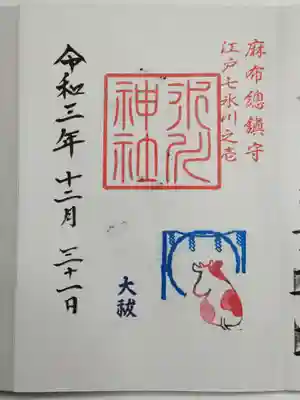 麻布總鎮守
江戸七氷川之壱
氷川神社
大祓
令和三年十二月三十一日